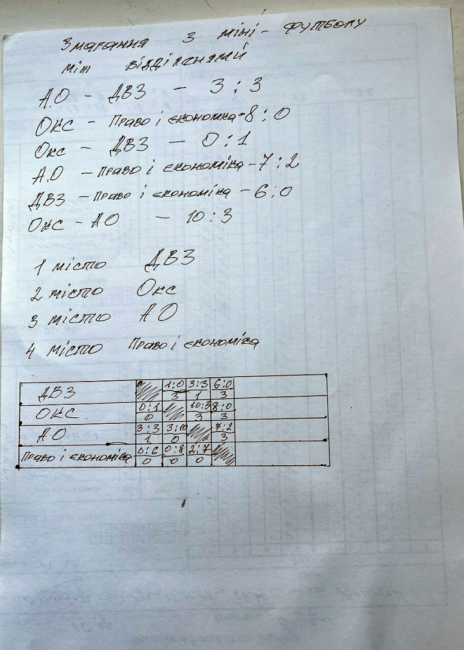 Змагання з міні-футболу
між відділенями
АО – ДВЗ – 3:3
ОКС – Право і економіка-8:0
Окс – ДВЗ – 0:1
АО – Право і економіка-7:2
ДВЗ – Право і економіка – 6:0
Окс – АО – 10:3
1 місто ДВЗ
2 місто Окс
3 місто АО
4 місто Право і економіка
ДВЗ 1:0 3:3 6:0
3 1 3
ОКС 0:1 10:3 8:0
0 3 3
АО 3:3 3:10 7:2
1 0 3
Право і економіка 0:6 0:8 2:7
0 0 0